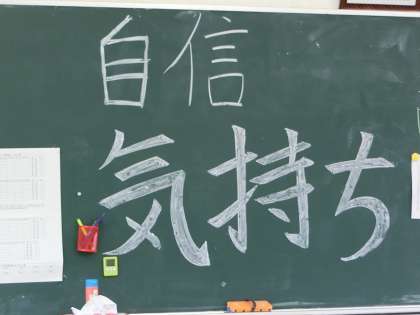 自信
気持ち